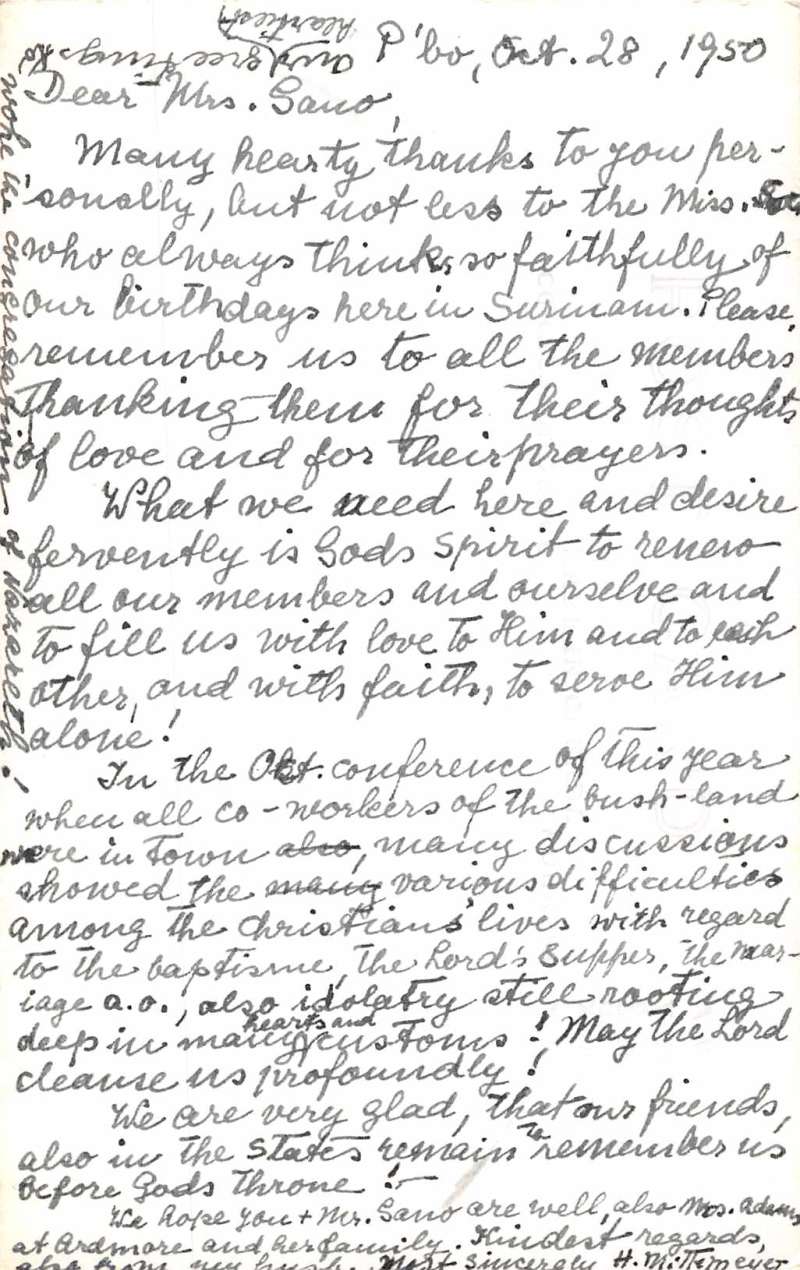 P'bo, Oct. 28, 1950
Dear Mrs. Sano,
Many hearty thanks to you per-
sonally, but not less to the Miss. Soc.
who always thinks so faithfully of
our birthdays here in Surinam. Please,
remember us to all the members
thanking them for their thoughts
of love and for their prayers.
What we need here and desire
fervently is Gods Spirit to renew
all our members and ourselve and
to fill us with love to Him and to each
other, and with faith, to serve Him
alone!
In the Oct. conference of this year
when all co-workers of the bush-land
were in town also, many discussions
showed the many various difficulties
among the Christians' lives with regard
to the baptisme, the Lord's Supper, the mar-
iage a.o., also idolatry still rooting
deep in many hearts and customs! May the Lord
cleanse us profoundly!
We are very glad, that our friends,
also in the States remain to remember us
before Gods throne!
We hope you + Mr. Sano are well, also Mrs. Adams
at Ardmore and her family. Kindest regards,
also from my husb. Most sincerely H. M.
and heartiest greetings to
whole the congregation of Nazareth!